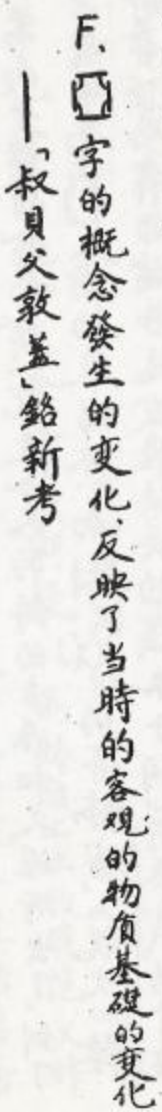 F、字的概念發生的变化、反映了当時的客观的物质基礎的变化
——「叔貝父敦蓋」銘新考